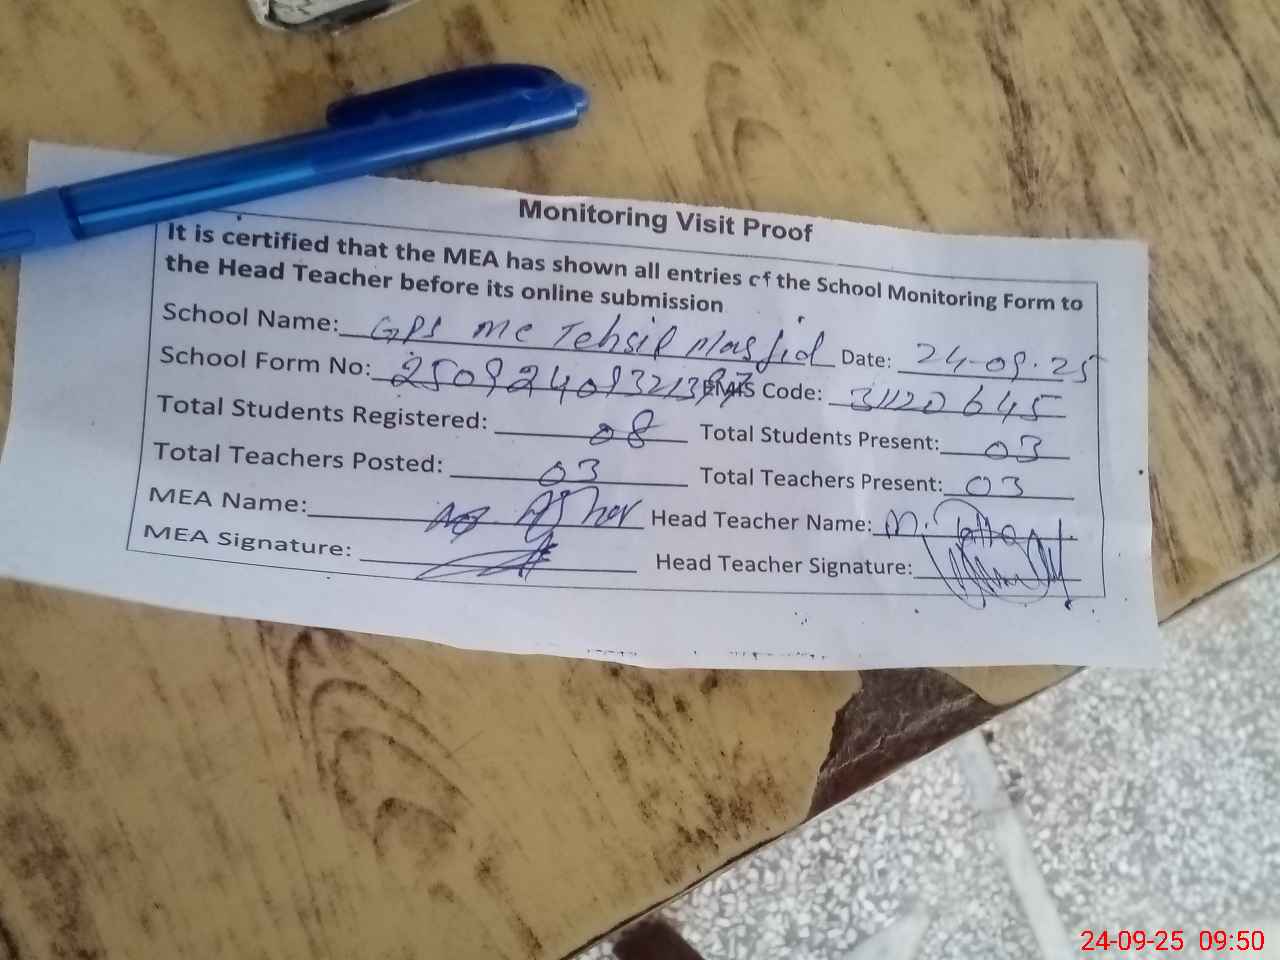 Monitoring Visit Proof
It is certified that the MEA has shown all entries of the School Monitoring Form to
the Head Teacher before its online submission
School Name: GPS MC Tehsil Masjid Date: 24-09-25
School Form No: EMIS Code: 31120645
Total Students Registered: 08 Total Students Present: 03
Total Teachers Posted: 03 Total Teachers Present: 03
MEA Name: Head Teacher Name: M.
MEA Signature: Head Teacher Signature:
24-09-25 09:50